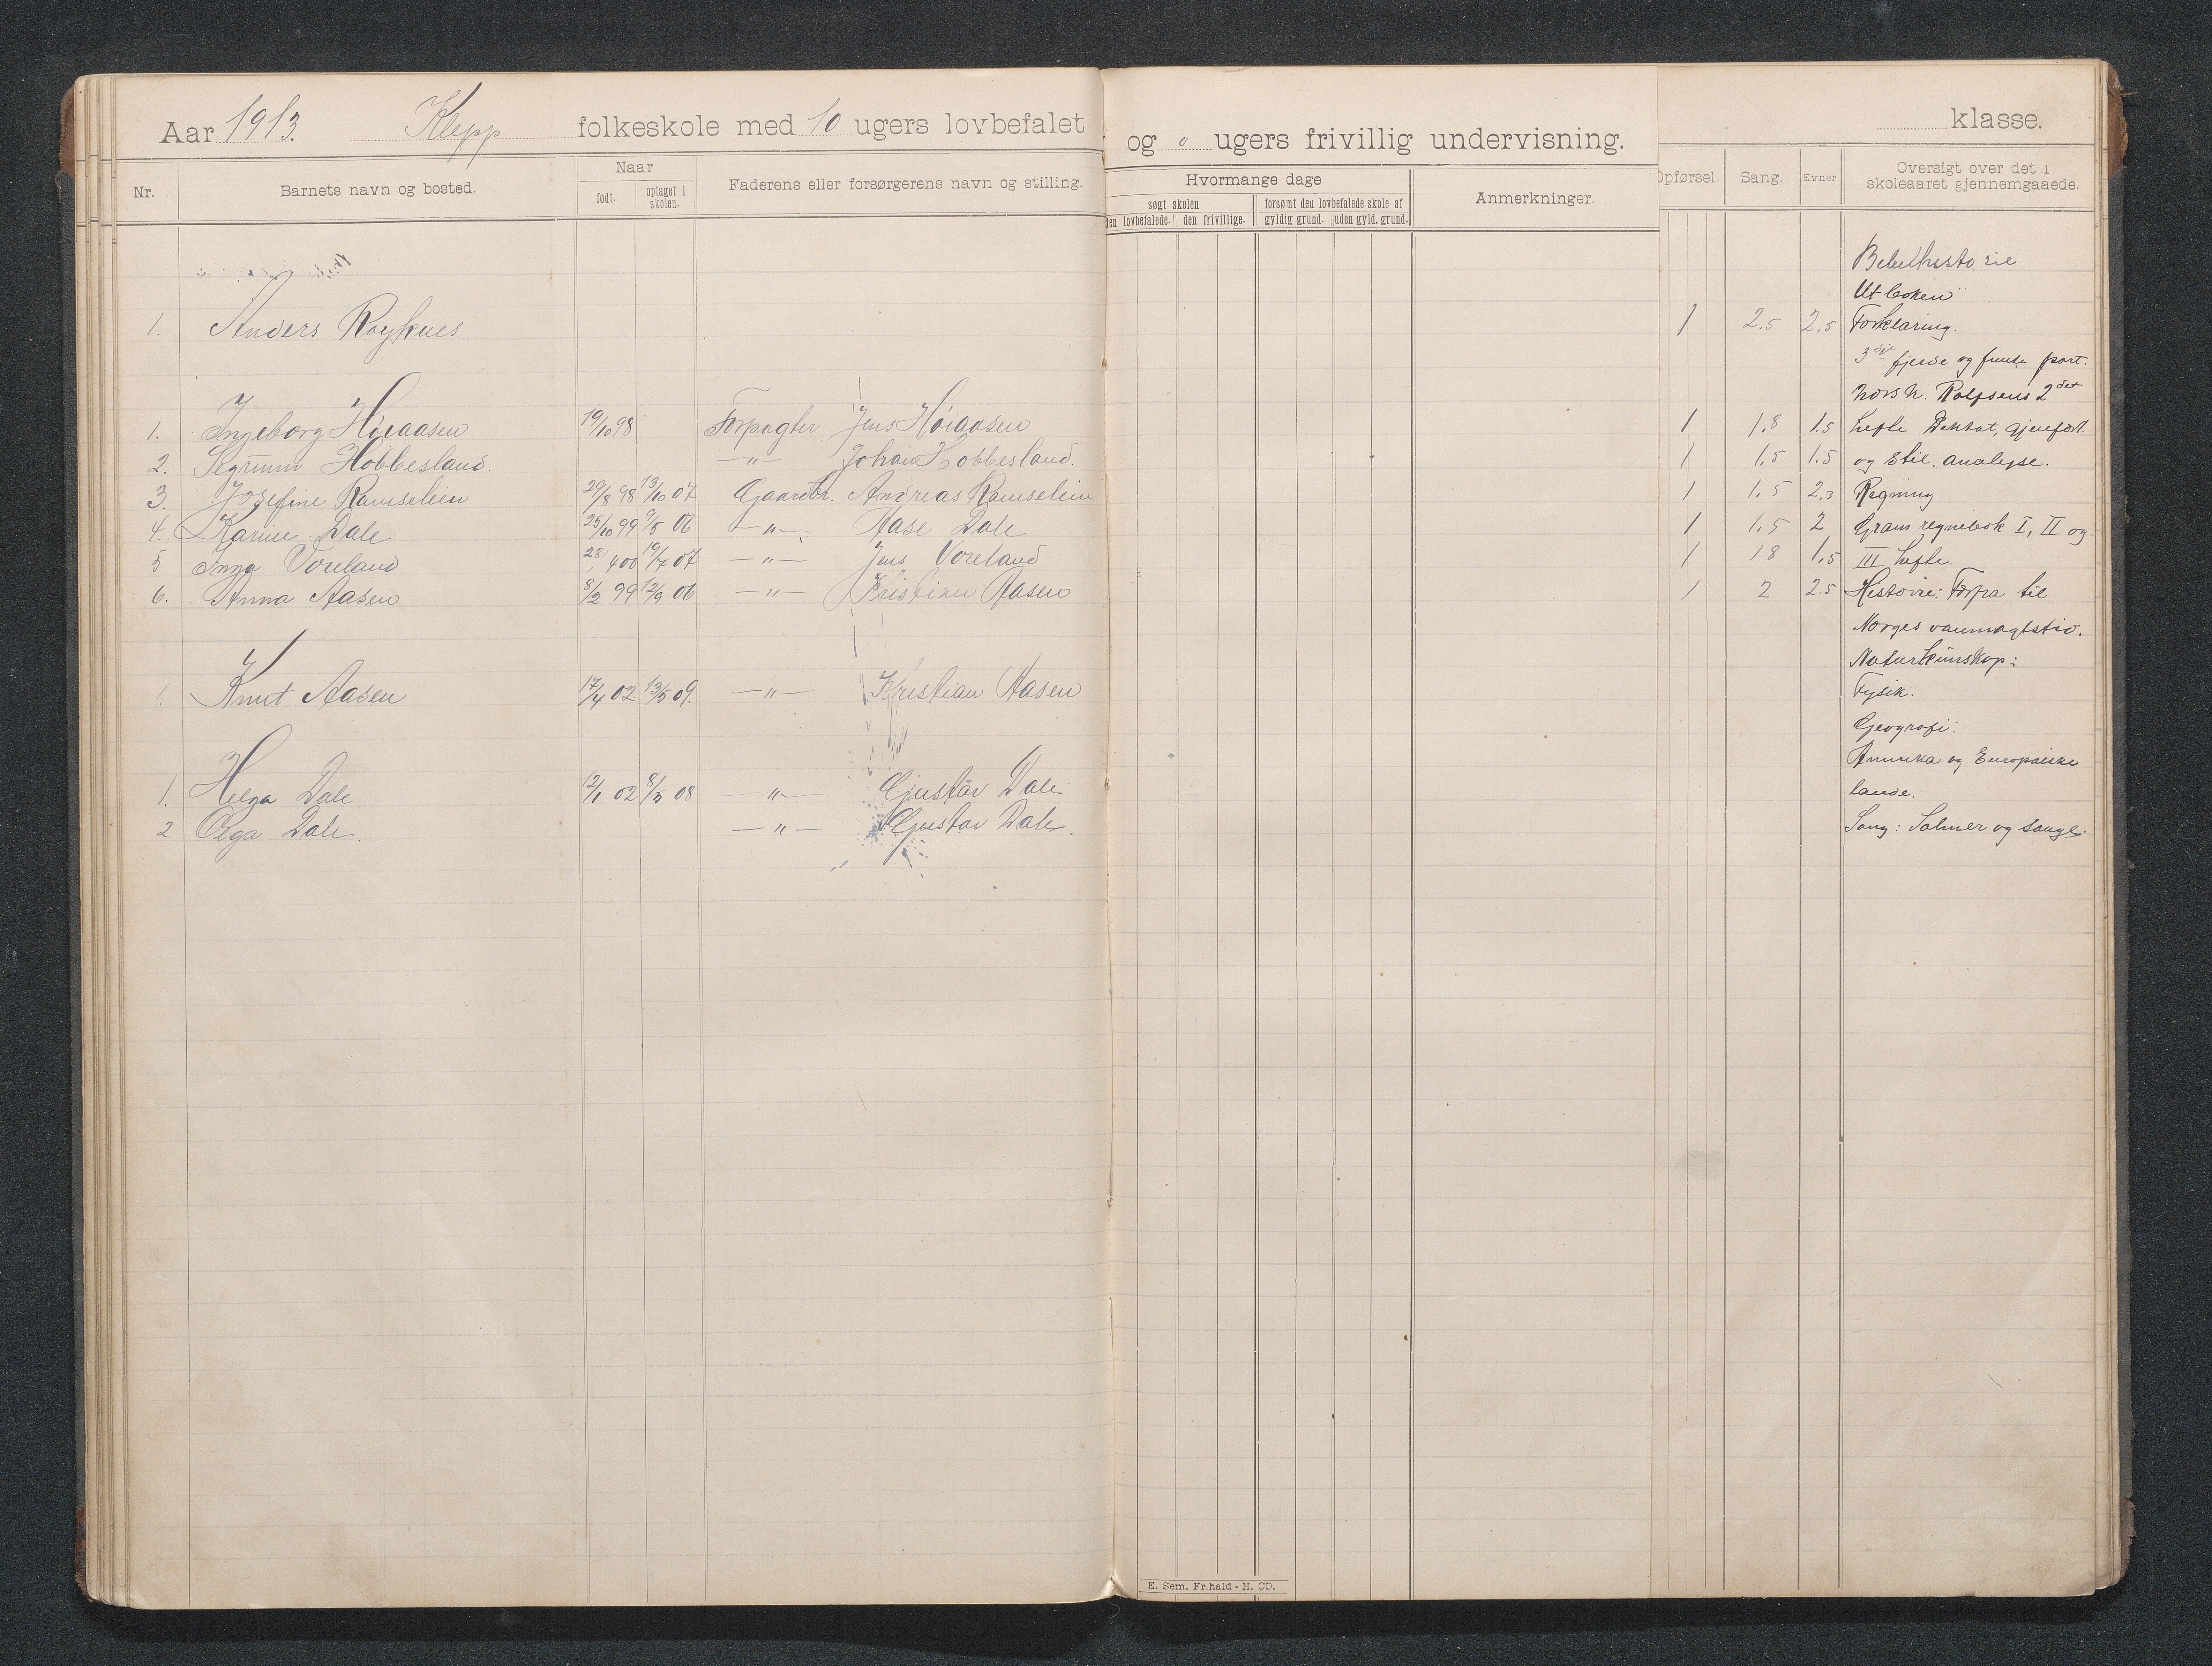 Aar 1913. Klepp folkeskole med 10 ugers lovbefalet og 0 ugers frivillig undervisning. klasse.
Nr. Barnets navn og bosted. Naar født. optaget i skolen. Faderens eller forsørgerens navn og stilling. Hvormange dage søgt skolen den lovbefalede. den frivillige. forsømt den lovbefalede skole af gyldig grund. uden gyld. grund. Anmerkninger. Opførsel. Sang. Evner Oversigt over det i skoleaaret gjennemgaaede.
Bibelhistorie
Ut boken
1. Anders Røyknes 1 2.5 2.5 Forklaring.
3die fjerde og femte part.
Norsk. Rolfsens 2det
1. Ingeborg Høiaasen 19/10 98 Forpagter Jens Høiaasen 1 1,8 1.5 hefte Diktat, gjenfort.
2. Sigrunn Hobbesland. —"— Johan Hobbesland. 1 1,5 1.5 og Stil. analyse.
3. Josefine Ramsebein 29/8 98 13/10 07 Gaardbr. Andreas Ramsebein 1 1,5 2,3 Regning
4. Karine Dale 25/10 99 9/5 06 —"— Aase Dale 1 1,5 2 Grans regnebok I, II og
5 Inga Voreland 28/4 00 19/7 07 —"— Jens Voreland 1 1 8 1,5 III hefte.
6. Anna Aasen 8/2 99 12/9 06 —"— Kristian Aasen 1 2 2.5 Historie: Fra til
Norges vanmagtstid.
Naturkunskap:
1. Knut Aasen 17/4 02 13/5 09. —"— Kristian Aasen Fysik.
Geografi:
Amerika og Europæiske
1. Helga Dale 12/1 02 8/5 08 —"— Gjustav Dale lande.
2 Olga Dale. —"— Gjustav Dale. Sang: Salmer og sange.
E. Sem, Fr.hald - H. CD.